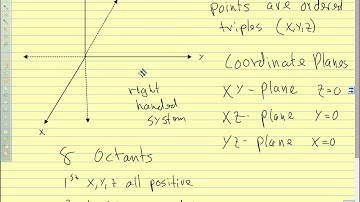 points are ordered
triples (x,y,z)
Y
X
right
handed
system
Coordinate Planes
XY-plane Z=0
XZ-plane Y=0
YZ-plane X=0
8 Octants
1st X,Y,Z all positive